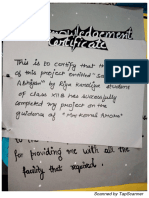 Acknowledgement
Certificate
This is to certify that th
of this project entitled "Sa
Abhijan" by Riya
of class XII B has successfully
completed my project on the
guidance of "Mrs Kamal Khosla"
for providing me with all the
facility that required.
Scanned by TapScanner